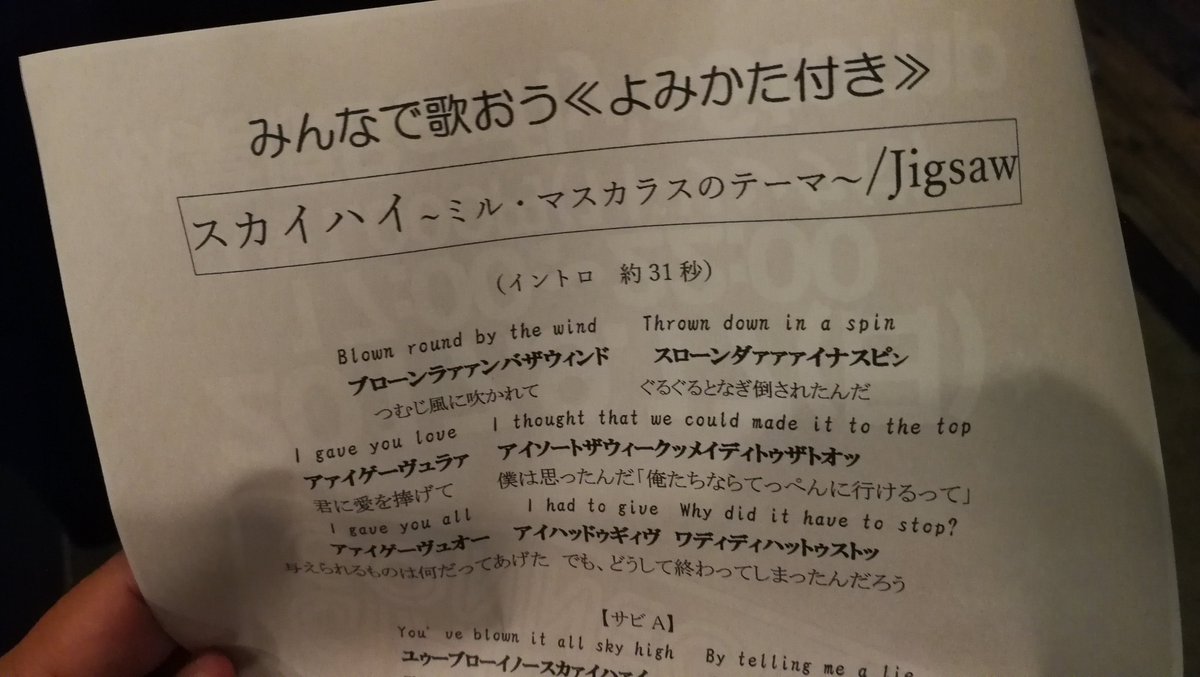 みんなで歌おう≪よみかた付き≫
スカイハイ～ミル・マスカラスのテーマ～/Jigsaw
（イントロ　約31秒）
Blown round by the wind　Thrown down in a spin
ブローンラァァンバザウィンド　スローンダァァァイナスピン
つむじ風に吹かれて　ぐるぐるとなぎ倒されたんだ
I gave you love　I thought that we could made it to the top
アァイゲーヴュラァ　アイソートザウィークッメイディトゥザトオッ
君に愛を捧げて　僕は思ったんだ「俺たちならてっぺんに行けるって」
I gave you all　I had to give　Why did it have to stop?
アァイゲーヴュオー　アイハッドゥギィヴ　ワディディハットゥストッ
与えられるものは何だってあげた　でも、どうして終わってしまったんだろう
【サビA】
You've blown it all sky high　By telling me a lie
ユゥーブローイノースカァイハァイ